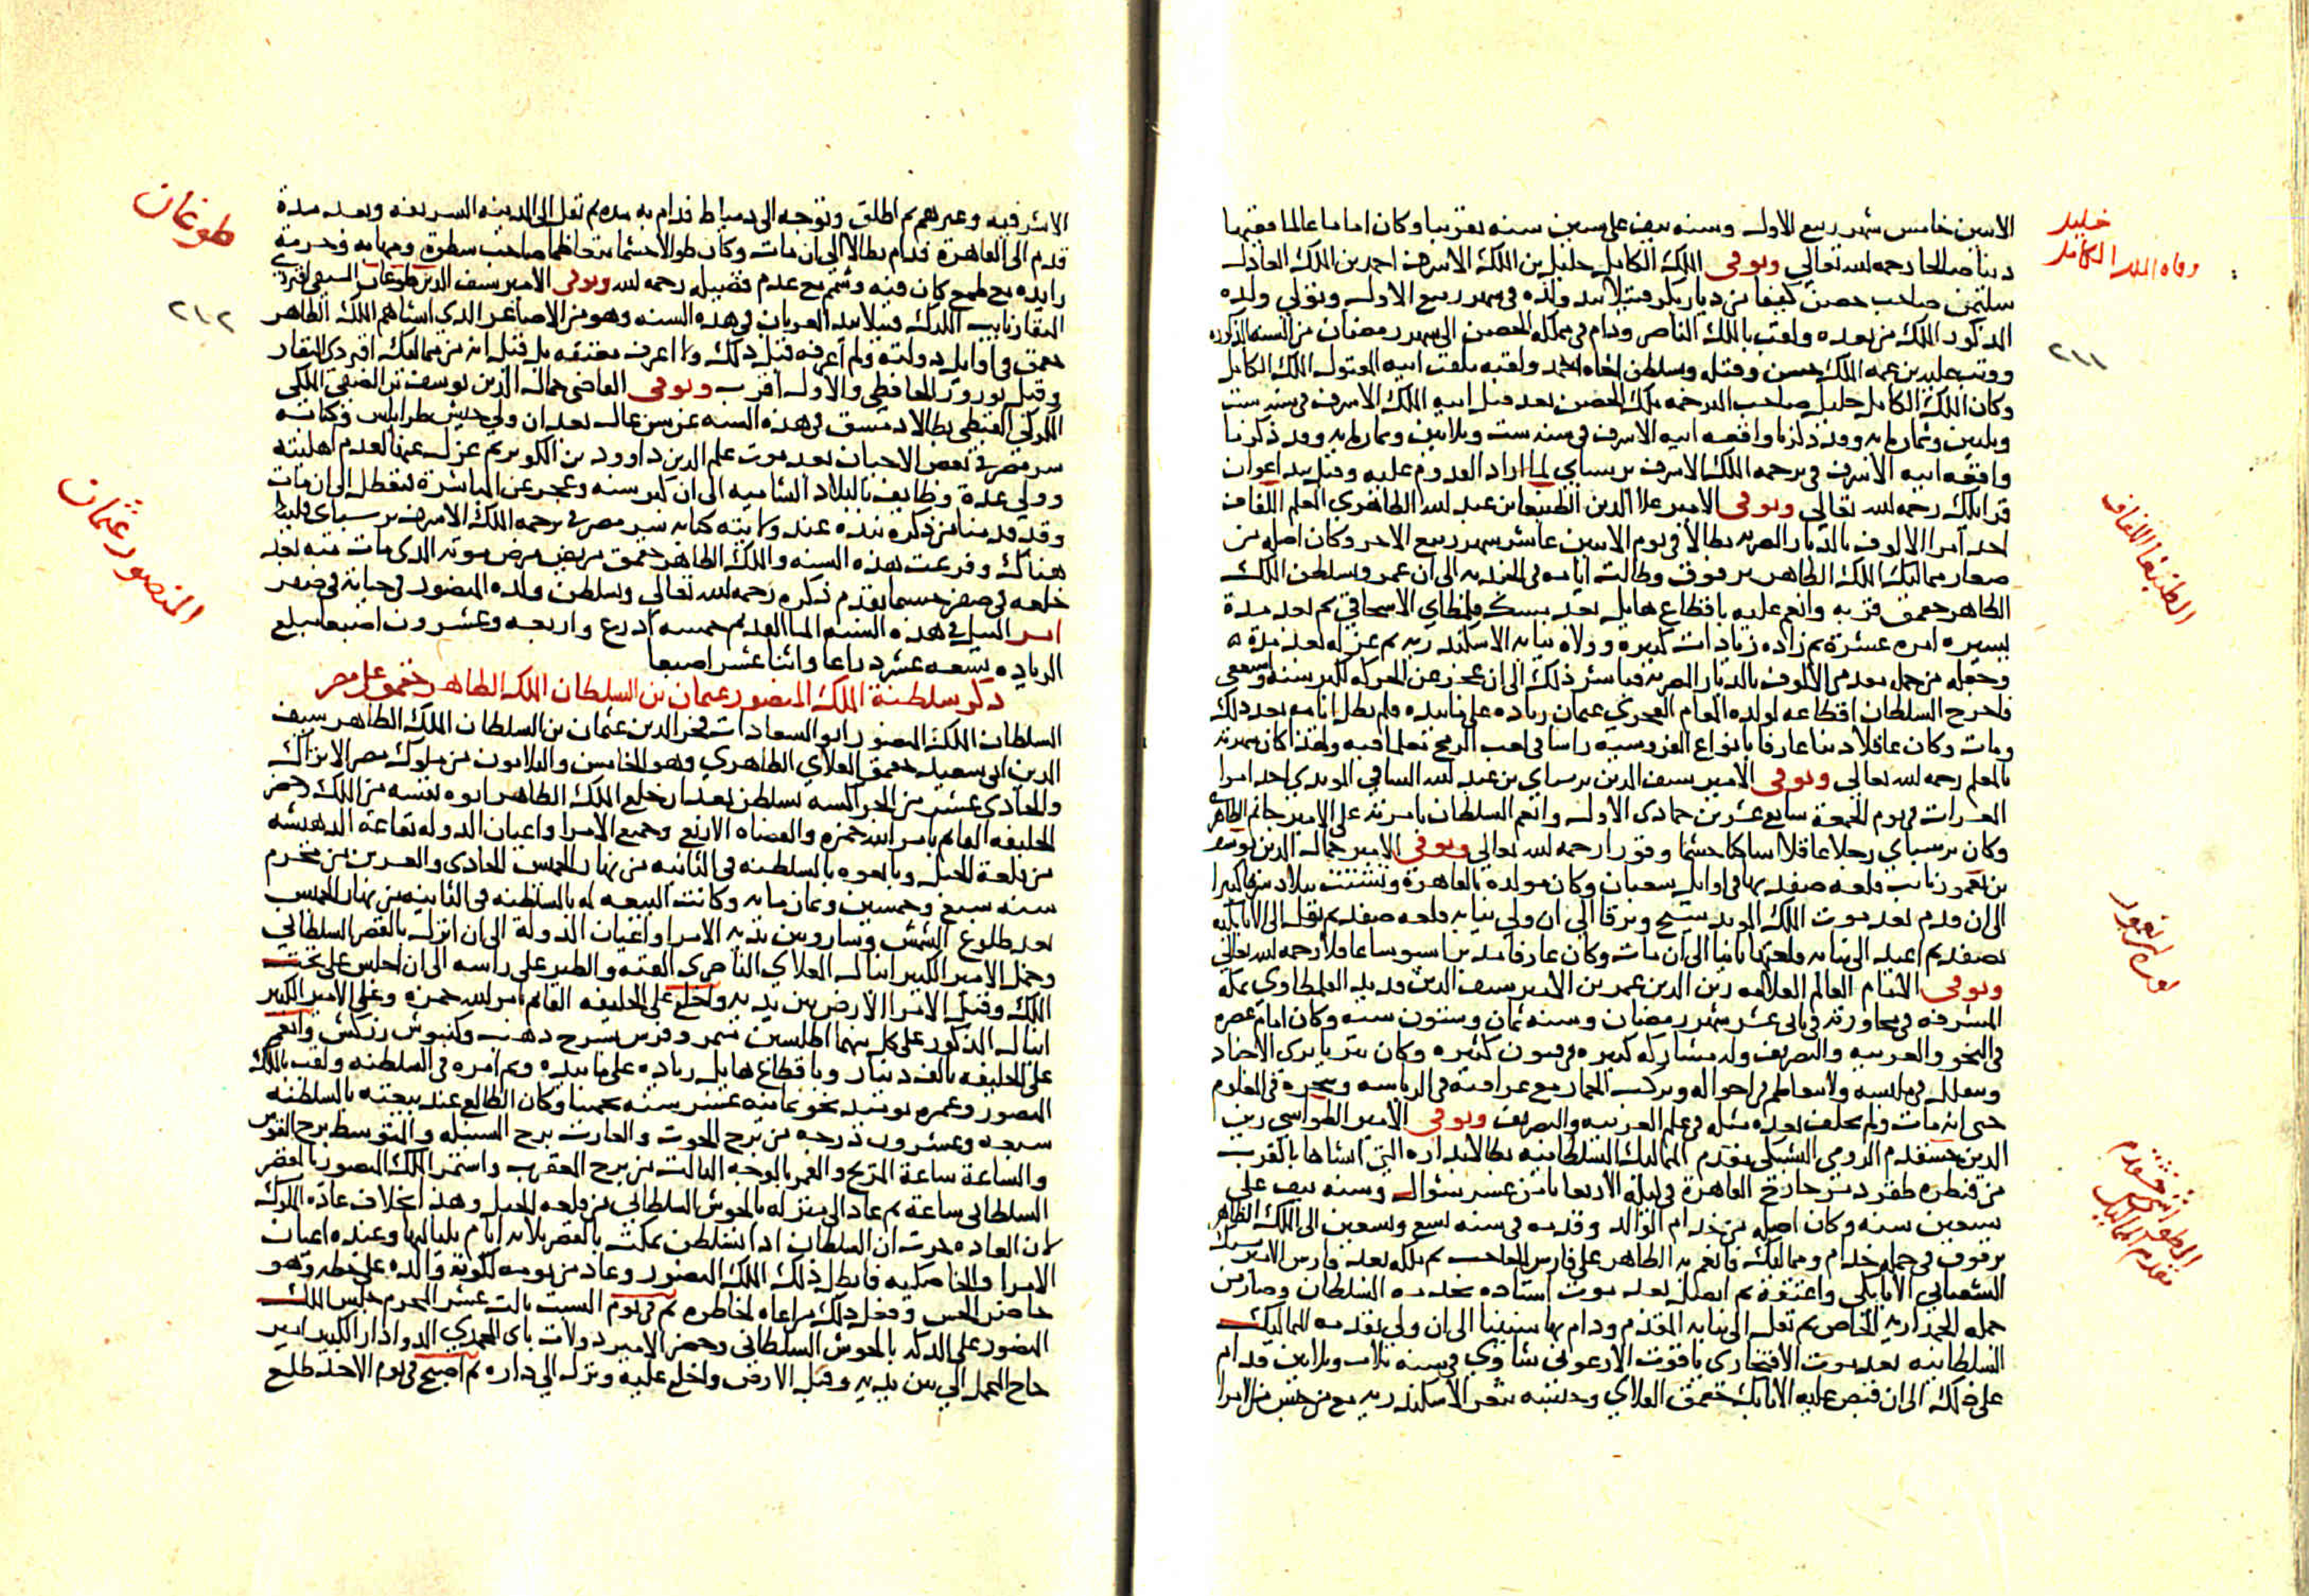 خليل
وفاه الملك الكامل
٢١١
الاثنين خامس شهر ربيع الاول وسنه نيف على سبعين سنه تقريبا وكان اماما عالما فقيها
دينا صالحا رحمه الله تعالى وتوفى الملك الكامل خليل بن الملك الاشرف احمد بن الملك العادل
سليمن صاحب حصن كيفا من ديار بكر قتيلا بيد ولده في شهر ربيع الاول وتولى ولده
المذكور الملك من بعده ولقب بالملك الناصر ودام في مملكه الحصن الى شهر رمضان من السنه المذكوره
ووثب عليه بن عمه الملك حسن وقتله وسلطن اخاه احمد ولقبه بلقب ابيه المقتول الملك الكامل
وكان الملك الكامل خليل صاحب الترجمه ملك الحصن بعد قتل ابيه الملك الاشرف في سنه ست
وثلاثين وثمان مايه وقد ذكرنا واقعه ابيه الاشرف في سنه ست وثلاثين وثمان مايه وقد ذكرنا
واقعه ابيه الاشرف في ترجمه الملك الاشرف برسباي لما اراد القدوم عليه وقتل بيد اعوان
قرايلك رحمه الله تعالى وتوفى الامير علا الدين الطنبغا بن عبد الله الظاهري المعلم اللفاف
احد امرا الالوف بالديار المصريه بطالا في يوم الاثنين عاشر شهر ربيع الاخر وكان اصله من
صغار مماليك الملك الظاهر برقوق وطالت ايامه في الجنديه الى ان عمر وتسلطن الملك
الظاهر جقمق قربه وانعم عليه باقطاع هايل بعد مسك قلمطاي الاسحاقي ثم بعد مدة
يسيره امره عشرة ثم زاده زيادات كثيره وولاه نيابه الاسكندريه ثم عزله بعد مدة
وجعله من جمله مقدمي الالوف بالديار المصريه فباشر ذلك الى ان عجز عن الحركه لكبر سنه واستعفى
فاخرج السلطان اقطاعه لولده المقام الفخري عثمان زياده على ما بيده فلم تطل ايامه بعد ذلك
ومات وكان عاقلا دينا عارفا بانواع الفروسيه راسا في لعب الرمح تعلما فيه ولهذا كان شهرته
بالمعلم رحمه الله تعالى وتوفى الامير سيف الدين برسباي بن عبد الله الساقي المويدي احد امرا
العشرات في يوم الجمعة سابع عشرين جمادى الاول وانعم السلطان بامرته على الامير جانم الظاهري
وكان برسباي رجلا عاقلا ساكنا حشما وقورا رحمه الله تعالى وتوفى الامير جمال الدين يوسف
بن يغمور نايب قلعه صفد بها في اوايل شعبان وكان مولده بالقاهرة وتشتت ببلاد
الى ان قدم بعد موت الملك المويد شيخ وترقا الى ان ولي نيابه قلعه صفد ثم نقل الى الاتابكيه
بصفد ثم اعيد الى نيابه قلعتها ثانيا الى ان مات وكان عارفا مدبرا سيوسا عاقلا رحمه الله تعالى
وتوفى الامام العالم العلامه زين الدين عمر بن الامير سيف الدين قديد القلمطاوي بمكة
المشرفه في مجاورته في ثاني عشر شهر رمضان وسنه ثمان وستون سنه وكان امام عصره
في النحو والعربيه والتصريف وله مشاركه كبيره في فنون كثيره وكان يتزيا بزي الاجناد
ويتقلل في ملبسه ولا يتعاظم في احواله ويركب الحمار مع عراقته في الرياسه وتبحره في العلوم
حتى انه مات ولم يخلف بعده مثله في علم العربيه والتصريف وتوفى الامير الطواشي زين
الدين خشقدم الرومي اليشبكي مقدم المماليك السلطانيه بطالا بداره التي انشاها بالقرب
من قنطره طقزدمر خارج القاهرة في ليلة الاربعا ثامن عشر شوال وسنه نيف على
سبعين سنه وكان اصله من خدام الوالد وقدمه في سنه تسع وتسعين الى الملك الظاهر
برقوق في جمله خدام ومماليك فانعم به الظاهر على فارس الحاجب ثم ملكه بعد فارس الامير يشبك
الشعباني الاتابكي واعتقه ثم اتصل بعد موت استاده بخدمه السلطان وصار من
جمله الجمداريه الخاص ثم نقل الى نيابه المقدم ودام بها سنينا الى ان ولي تقدمه المماليك
السلطانيه بعد موت الافتخاري ياقوت الارغون شاوي في سنه ثلاث وثلاثين فدام
على ذلك الى ان قبض عليه الاتابك جقمق العلاي وحبسه بثغر الاسكندريه مع من حبس من الامرا
الطنبغا اللفاف
يوسف بن يغمور
الطواشي خشقدم
مقدم المماليك
طوغان
٢١٢
المنصور عثمان
الاشرفيه وغيرهم ثم اطلق وتوجه الى دمياط فدام به مده ثم نقل الى المدينه الشريفه وبعد مدة
قدم الى القاهرة فدام بطالا الى ان مات وكان طوالا حشما متعاظما صاحب سطوة ومهابه وحرمة
زايده مع طمع كان فيه وشمم مع عدم فضيله رحمه الله وتوفى الامير سيف الدين طوغان السيفي اقبردي
المنقار نايب الكرك قتيلا بيد العربان في هذه السنه وهو من الاصاغر الدي انشاهم الملك الظاهر
جقمق في اوايل دولته ولم اعرفه قبل ذلك ولا اعرف معتقه بل قيل انه من مماليك اقبردي المنقار
وقيل نوروز الحافظي والاول اقرب وتوفى القاضي جمال الدين يوسف بن الصفي الكركي
الملكي القبطي بطالا بدمشق في هذه السنه عن سن عال بعد ان ولي جيش طرابلس وكتابه
سر مصر في بعض الاحيان بعد موت علم الدين داوود بن الكويز ثم عزل عنها لعدم اهليته
وولي عدة وظايف بالبلاد الشاميه الى ان كبر سنه وعجز عن المباشرة فتعطل الى ان مات
وقد قدمنا من ذكره نبده عند ولايته كتابه سر مصر في ترجمه الملك الاشرف برسباي فلينظر
هناك وفرغت هذه السنه والملك الظاهر جقمق مريض مرض موته الدي مات منه بعد
خلعه في صفر حسبما تقدم ذكره رحمه الله تعالى وسلطن ولده المنصور في حياته في
امر النيل في هذه السنه الما القديم خمسه ادرع واربعه وعشرون اصبعا مبلغ
الزياده تسعه عشر دراعا واثنا عشر اصبعا
ذكر سلطنة الملك المنصور عثمان بن السلطان الملك الظاهر جقمق على مصر
السلطان الملك المنصور ابو السعادات فخر الدين عثمان بن السلطان الملك الظاهر سيف
الدين ابي سعيد جقمق العلاي الظاهري وهو الخامس والثلاثون من ملوك مصر الاتراك
والحادي عشر من الجراكسه تسلطن بعد ان خلع الملك الظاهر ابوه نفسه من الملك وحضر
الخليفه القايم بامر الله حمزه والقضاه الاربع وجميع الامرا واعيان الدوله بقاعه الدهيشه
من قلعة الجبل وبايعوه بالسلطنه في الثانيه من نهار الخميس الحادي والعشرين من محرم
سنه سبع وخمسين وثمان مايه وكانت البيعه له بالسلطنه في الثانيه من نهار الخميس
بعد طلوع الشمس وساروبين يديه الامرا واعيان الدولة الى ان انزل بالقصر السلطاني
وحمل الامير الكبير اينال العلاي الناصري القبه والطير على راسه الى ان جلس على تخت
الملك وقبل الامرا الارض بين يديه واخلع على الخليفه القايم بامر الله حمزه وعلى الامير الكبير
اينال المذكور على كل منهما اطلسين متمر وفرس بسرج دهب وكنبوش زركش وانعم
على الخليفه بالف دينار وباقطاع هايل زياده على ما بيده وتم امره في السلطنه ولقب بالملك
المنصور وعمره يوميد نحو ثمانيه عشر سنه تخمينا وكان الطالع عند بيعته بالسلطنه
سبعه وعشرون درجه من برج الحوت والغارب برج السنبله والمتوسط برج القوس
والساعة ساعة المريخ والقمر بالوجه الثالث من برج العقرب واستمر الملك المنصور بالقصر
السلطاني ساعة ثم عاد الى منزله بالحوش السلطاني من قلعه الجبل وهذا بخلاف عادة الملوك
لان العاده جرت ان السلطان ادا تسلطن يمكث بالقصر ثلاثه ايام بلياليها وعنده اعيان
الامرا والخاصكيه فابطل ذلك الملك المنصور وعاد من يومه لكونه والده على خطه وهو
حاضر الحس وفعل ذلك مراعاه لخاطره ثم في يوم السبت ثالث عشر المحرم جلس الملك
المنصور على الدكه بالحوش السلطاني وحضر الامير دولات باي المحمدي الدوادار الكبير امير
حاج المحمل الى بين يديه وقبل الارض واخلع عليه ونزل الى داره ثم اصبح في يوم الاحد طلع